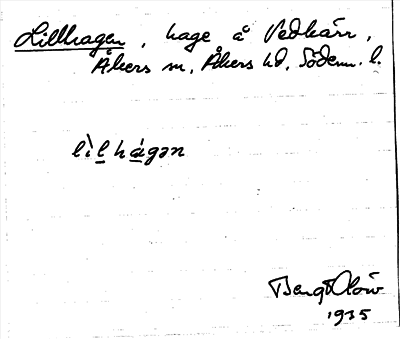 Lillhagen, hage å Vedkärr,
Åkers sn, Åkers hd, Söderm. l.
lìl hágən
Bengt Olow
1935